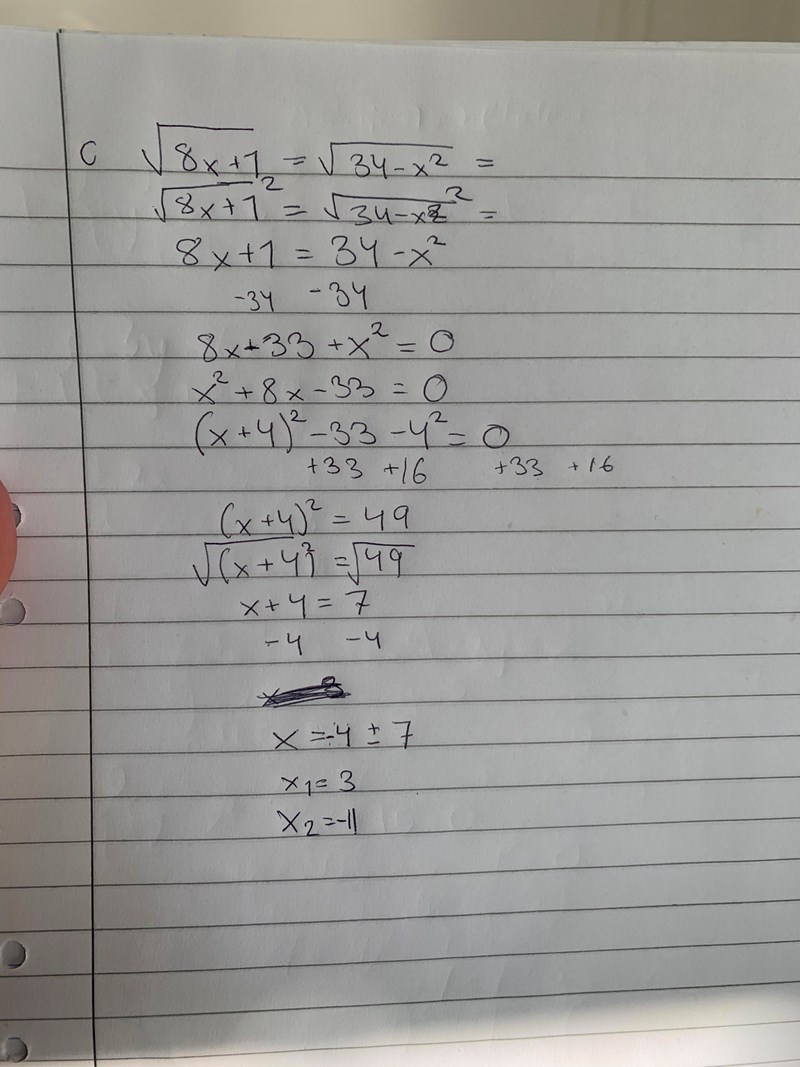 C √8x+1 = √34-x² =
√8x+1² = √34-x2² =
8x+1 = 34-x²
-34 -34
8x+33+x² = 0
x²+8x-33 = 0
(x+4)²-33-4² = 0
+33 +16 +33 +16
(x+4)² = 49
√(x+4)² = √49
x+4 = 7
-4 -4
x = -4 ± 7
x₁ = 3
x₂ = -11